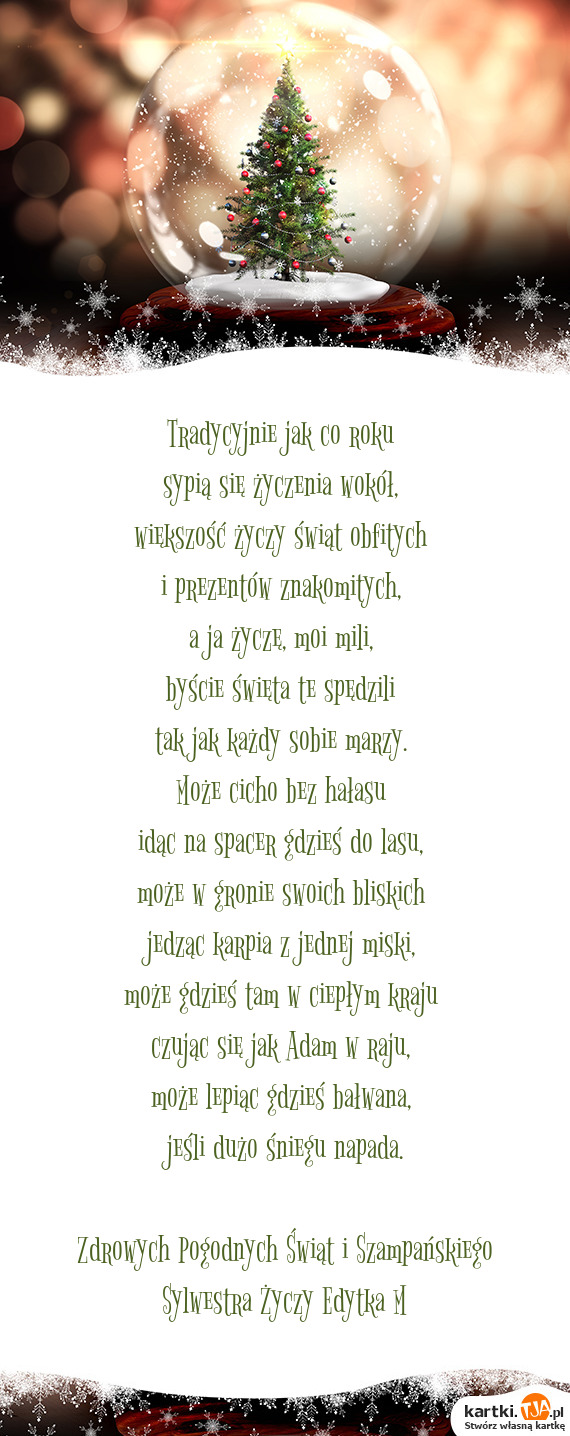 Tradycyjnie jak co roku
sypią się życzenia wokół,
większość życzy świąt obfitych
i prezentów znakomitych,
a ja życzę, moi mili,
byście święta te spędzili
tak jak każdy sobie marzy.
Może cicho bez hałasu
idąc na spacer gdzieś do lasu,
może w gronie swoich bliskich
jedząc karpia z jednej miski,
może gdzieś tam w ciepłym kraju
czując się jak Adam w raju,
może lepiąc gdzieś bałwana,
jeśli dużo śniegu napada.
Zdrowych Pogodnych Świąt i Szampańskiego
Sylwestra Życzy Edytka M
kartki.TJA.pl
Stwórz własną kartkę